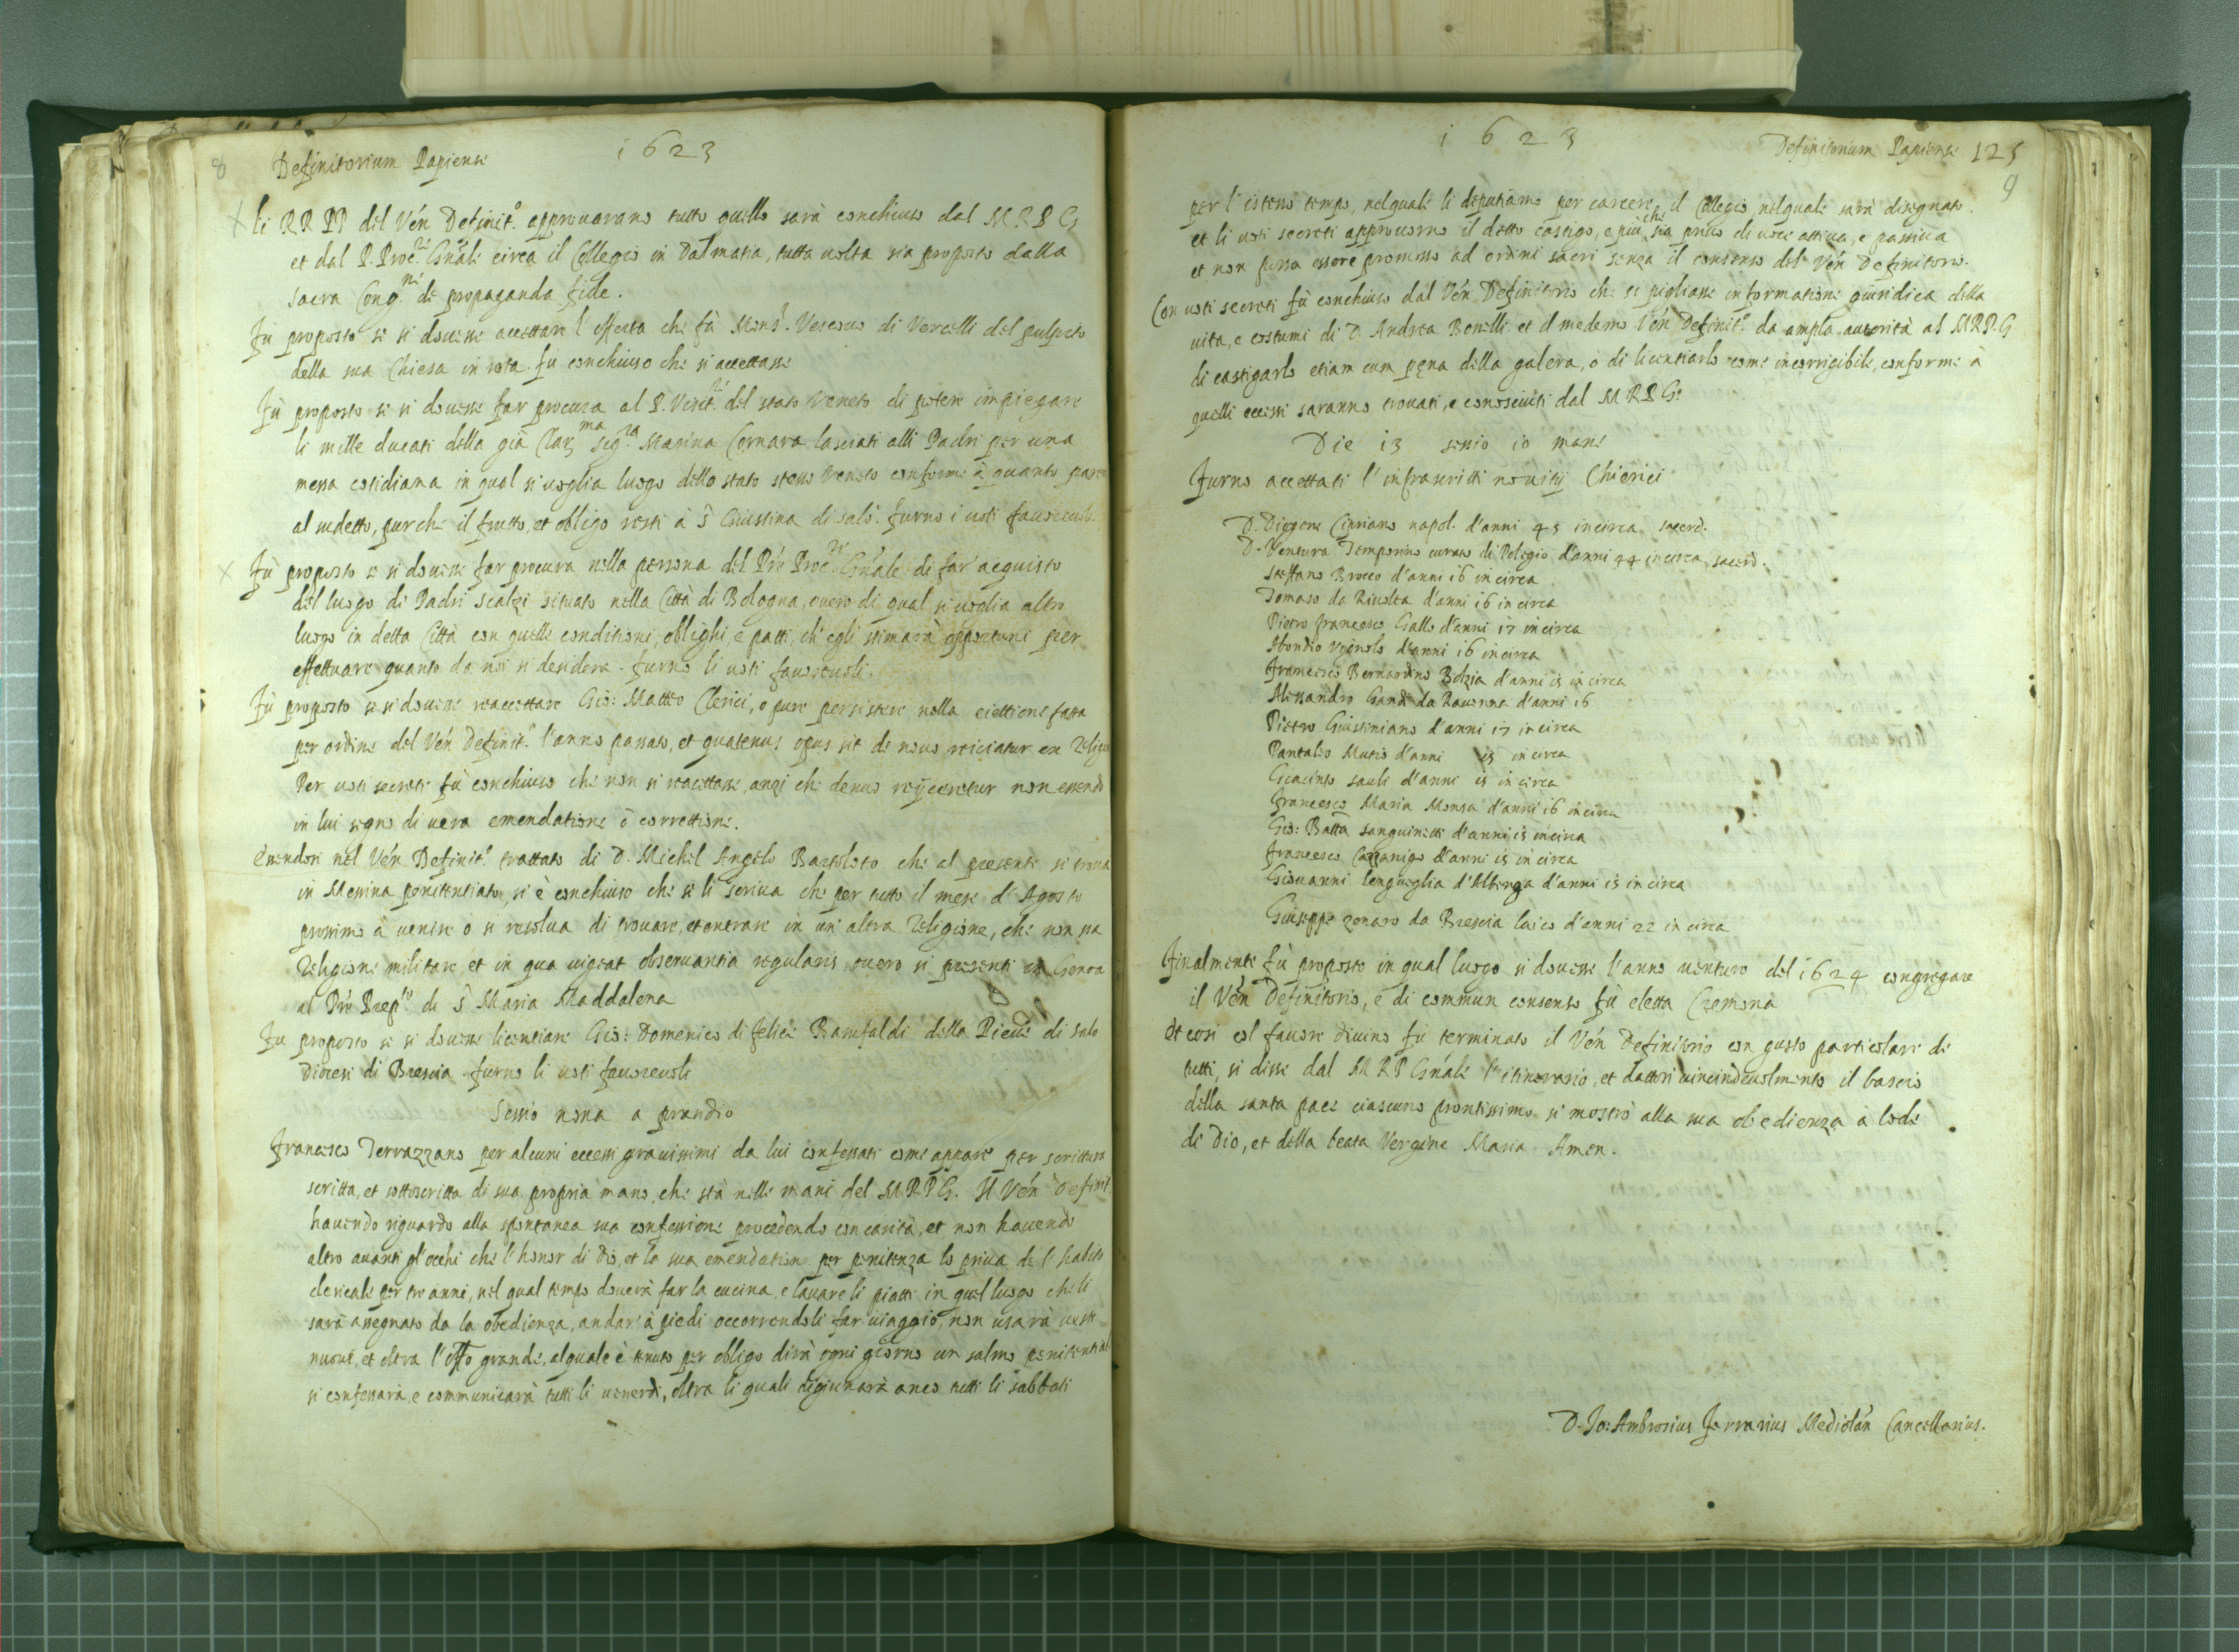 8 Definitorium Papiense 1623
li RR PP del Ven Definit.º approuarano tutto quello sarà conchiuso dal M.R.P. G
et dal P. Proc.re Gnale circa il Collegio in Dalmatia, tutta uolta sia proposto dalla
sacra Cong.ni de propaganda fide.
Fù proposto se si douesse accettare l'offerta che fà Monsr. Vescouo di Vercelli del pulpito
della sua Chiesa in sota. fu conchiuso che si accettasse
Fù proposto se si douesse far procura al P. Visit.re del stato Veneto di poter impiegare
li mille ducati della già Clar.ma sig.ra Marina Cornara lasciati alli Padri per una
messa cotidiana in qual si uoglia luogo dello stato stesso Veneto conforme à quanto
al sudetto, purche il frutto, et obligo resti à S Giustina di salò. furno i uoti fauoreuoli.
Fù proposto se si douesse far procura nella persona del Pre Proc.re Gnale di far acquisto
del luogo di Padri scalzi situato nella Città di Bologna, ouero di qual si uoglia altro
luogo in detta Città con quelle conditioni, oblighi e patti, ch'egli stimarà opportuni per
effettuare quanto da noi si desidera. furno li uoti fauoreuoli.
Fù proposto se si douesse reaccettare Gio: Matteo Clerici, o pure persistere nella eiettione fatta
per ordine del Ven Definit.º l'anno passato, et quatenus opus sit de nouo reiciatur ex Relig
Per uoti secreti fù conchiuso che non si reacettasse, anzi che denuo reijceretur non essendo
in lui segno di uera emendatione ò correttione.
Essendosi nel Ven Definit.º trattato di D. Michel Angelo Bartoloto che al presente si troua
in Messina penitentiato, si è conchiuso che se li scriua che per tutto il mese d'Agosto
prossimo à uenire o si resolua di trouare, et entrare in un' altra Religione, che non sia
Religione militare, et in qua uigeat obseruantia regularis, ouero si presenti in Genoa
al Pre Prep.to di S Maria Maddalena
Fu proposto se si douesse licentiare Gio: Domenico di felice Barufaldi della Pieue di Salo
Diocesi di Brescia. furno li uoti fauoreuoli
Sessio nona a prandio
Francesco Terrazzano per alcuni eccessi grauissimi da lui confessati come appare per scrittura
scritta, et sottoscritta di sua propria mano, che stà nelle mani del M R P G. Il Ven Definit
hauendo riguardo alla spontanea sua confessione procedendo con carità, et non hauendo
altro auanti gl'occhi che l'honor di Dio, et la sua emendation per penitenza lo priua de l'habito
clericale per tre anni, nel qual tempo douerà far la cucina, e lauare li piatti in quel luogo che li
sarà assegnato da la obedienza, andar' à piedi occorrendoli far uiaggio, non usarà ueste
nuoue, et oltra l'offo grande, alquale è tenuto per obligo dirà ogni giorno un salmo penitential
si confessarà, e communicarà tutti li uenerdì, oltra li quali digiunarà anco tutti li sabbati
1623 Definitorium Papiense 125
9
per l'istesso tempo, nelquale li deputiamo per carcere il Collegio nelquale sarà disegnato.
et li uoti secreti approuorno il detto castigo, e più che sia priuo di uoce attiua, e passiua
et non possa essere promosso ad ordini sacri senza il consenso del Ven Definitorio.
Con uoti secreti fù conchiuso dal Ven Definitorio che si pigliasse informatione giuridica della
uita, e costumi di D. Andrea Bonelli et il medemo Ven Definit.º da ampla autorità al M.R.P. G
di castigarlo etiam cum pęna della galera, ò di licentiarlo come incorrigibile, conforme à
quelli eccessi saranno trouati, e conosciuti dal M R P G.
Die i3 sessio io mane
Furno accettati l'infrascritti nouitij Chierici
D. Diogene Cipriano napol. d'anni 45 incirca sacerd.
D. Ventura Temporino curato di Pelegio d'anni 44 incirca, sacerd.
Steffano Brocco d'anni i6 in circa
Tomaso da Riuolta d'anni i6 in circa
Pietro francesco Gallo d'anni i7 in circa
Abondio Vignolo d'anni i6 in circa
francesco Bernardino Bolzia d'anni i5 in circa
Alessandro Gandi da Rauenna d'anni i6
Pietro Giustiniano d'anni i7 in circa
Pantaleo Mutio d'anni i5 in circa
Giacinto sauli d'anni i5 in circa
francesco Maria Monsa d'anni i6 in circa
Gio: Batta sanguinetti d'anni i5 in circa
francesco Carranigo d'anni i5 in circa
Giouanni lengueglia d'Albenga d'anni i5 in circa
Giuseppe zonaro da Brescia laico d'anni 22 in circa
Finalmente fù proposto in qual luogo si douesse l'anno uenturo del i624 congregare
il Ven Definitorio, e di commun consenso fù eletta Cremona
Et cosi col fauore Diuino fu terminato il Ven Definitorio con gusto particolare di
tutti, si disse dal M R P Gnale l'itinerario, et dattosi uicendeuolmente il bascio
della santa pace ciascuno prontissimo si mostrò alla sua obedienza à lode
di Dio, et della beata Vergine Maria. Amen.
D. Jo: Ambrosius Ferrarius Mediolan Cancellarius.